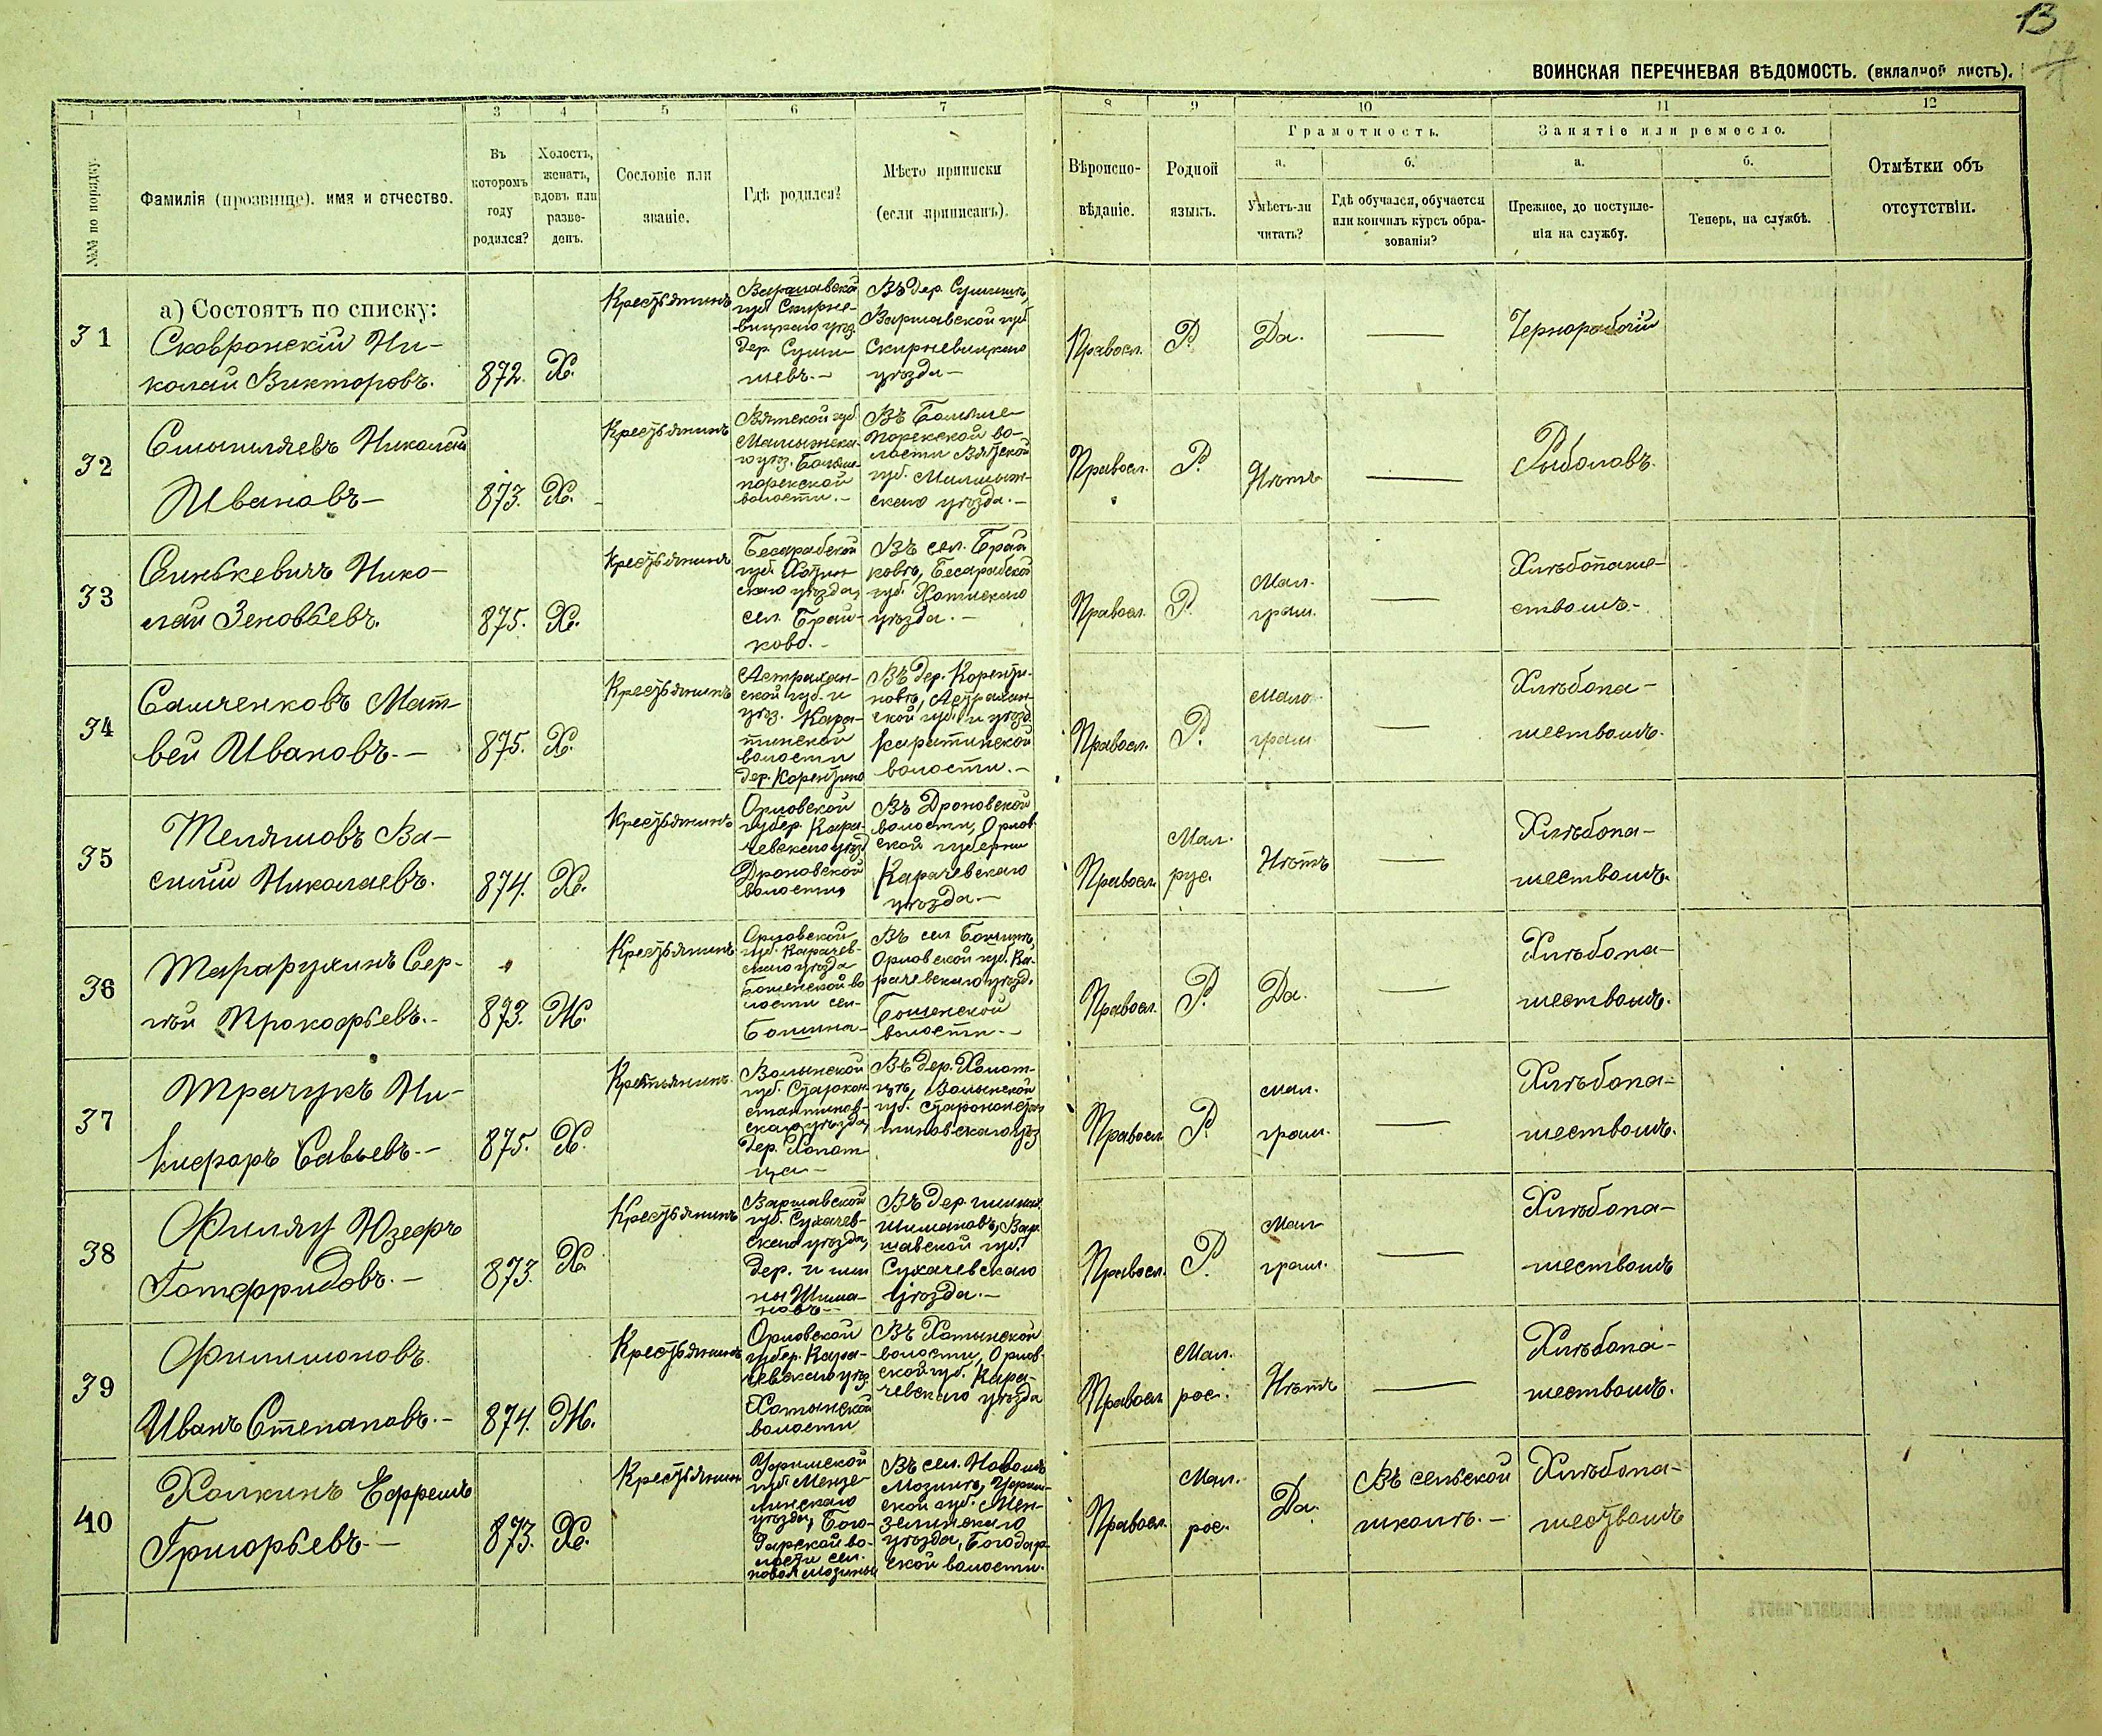 13
ВОИНСКАЯ ПЕРЕЧНЕВАЯ ВѢДОМОСТЬ. (вкладной листъ).
1
1
3
4
5
6
7
8
9
10
11
12
№№ по порядку.
Фамилія (прозвище), имя и отчество.
Въ
которомъ
году
родился?
Холостъ,
женатъ,
вдовъ или
разве-
денъ.
Сословіе или
званіе.
Гдѣ родился?
Мѣсто приписки
(если приписанъ).
Вѣроиспо-
вѣданіе.
Родной
языкъ.
Грамотность.
а.
б.
Умѣетъ-ли
читать?
Гдѣ обучался, обучается
или кончилъ курсъ обра-
зованія?
Занятіе или ремесло.
а.
б.
Прежнее, до поступле-
нія на службу.
Теперь, на службѣ.
Отмѣтки объ
отсутствіи.
а) Состоятъ по списку:
31
Сковронскій Ни-
колай Викторовъ.
872.
Х.
Крестьянинъ
Варшавской
губ. Скирне-
вицкаго уѣз.
дер. Сули-
Въ дер.
Варшавской губ.
Скирневицкаго
уѣзда —
Правосл.
Р.
Да.
—
Чернорабочій
32
Николай
Ивановъ —
873.
Х.
Крестьянинъ
Вятской губ.
Малмыжска-
го уѣз. Больше-
порекской
волости. —
Въ Больше-
порекской во-
лости Вятской
губ. Малмыж-
скаго уѣзда. —
Правосл.
Р.
Нѣтъ
—
Рыболовъ.
33
Синькевичъ Нико-
лай Зеновьевъ.
875.
Х.
Крестьянинъ
Бесарабской
губ. Хотин-
скаго уѣзда,
сел. Брай-
ково. —
Въ сел. Брай-
ковѣ, Бесарабской
губ. Хотинскаго
уѣзда. —
Правосл.
Р.
Мал.
грам.
—
Хлѣбопаше-
ствомъ. —
34
Самченковъ Мат-
вей Ивановъ. —
875.
Х.
Крестьянинъ
Астрахан-
ской губ. и
уѣз. Кара-
тинской
волости
дер. Корентино
Въ дер. Коренти-
новѣ, Астрахан-
ской губ. и уѣзд.
Каратинской
волости. —
Правосл.
Р.
Мало
грам.
—
Хлѣбопа-
шествомъ.
35
Теляшовъ Ва-
силій Николаевъ.
874.
Х.
Крестьянинъ
Орловской
губер. Кара-
чевскаго уѣзд
Дроновской
волости,
Въ Дроновской
волости, Орлов-
ской губерніи
Карачевскаго
уѣзда. —
Правосл.
Мал.
рус.
Нѣтъ
—
Хлѣбопа-
шествомъ.
36
Тарарухинъ Сер-
гѣй Прокофьевъ. —
873.
Ж.
Крестьянинъ
Орловской
губ. Карачев-
скаго уѣзда
Бошенской во-
лости сел.
Бошина —
Въ сел. Бошинѣ,
Орловской губ. Ка-
рачевскаго уѣзд.
Бошенской
волости. —
Правосл.
Р.
Да.
—
Хлѣбопа-
шествомъ.
37
Трачукъ Ни-
кифоръ Савьевъ. —
875.
Х.
Крестьянинъ
Волынской
губ. Старокон-
стантинов-
скаго уѣзда,
дер.
Въ дер.
Волынской
губ. Староконстан-
тиновскаго уѣз
Правосл
Р.
Мал.
грам.
—
Хлѣбопа-
шествомъ.
38
Филяу Юзефъ
Готфридовъ. —
873.
Х.
Крестьянинъ
Варшавской
губ. Сухачев-
скаго уѣзда,
дер.
Въ дер.
Вар-
шавской губ.
Сухачевскаго
уѣзда. —
Правосл.
Р.
Мал
грам.
—
Хлѣбопа-
шествомъ
39
Филимоновъ
Иванъ Степановъ. —
874.
Ж.
Крестьянинъ
Орловской
губер. Кара-
чевскаго уѣз
Хотынской
волости
Въ Хотынской
волости, Орлов-
ской губ. Кара-
чевскаго уѣзда
Правосл
Мал.
рос.
Нѣтъ
—
Хлѣбопа-
шествомъ.
40
Холкинъ Ефремъ
Григорьевъ. —
873.
Х.
Крестьянин
Уфимской
губ. Мензе-
линскаго
уѣзда, Бого-
дарской во-
лости сел.
Въ сел. Новомъ
Мозинѣ, Уфим-
ской губ. Мен-
зелинскаго
уѣзда, Богодар-
ской волости.
Правосл.
Мал.
рос.
Да.
Въ сельской
школѣ. —
Хлѣбопа-
шествомъ